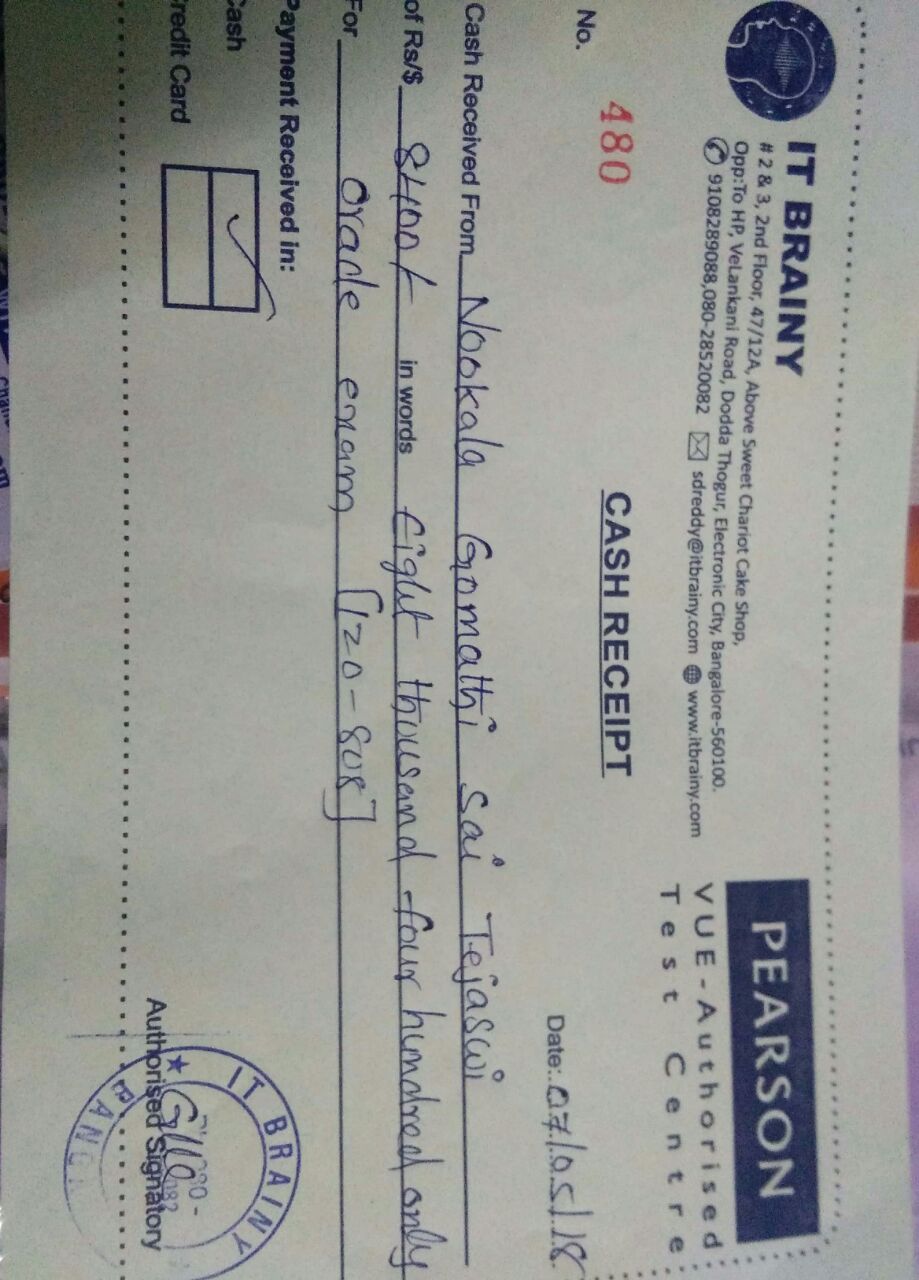 IT BRAINY
# 2 & 3, 2nd Floor, 47/12A, Above Sweet Chariot Cake Shop,
Opp:To HP, VeLankani Road, Dodda Thogur, Electronic City, Bangalore-560100.
9108289088,080-28520082 sdreddy@itbrainy.com www.itbrainy.com
PEARSON
VUE-Authorised
Test Centre
CASH RECEIPT
No. 480
Date: 07/05/18
Cash Received From Nookala Gomathi Sai Tejaswi
of Rs/$ 8400/- in words Eight thousand four hundred only
For Oracle exam [1z0-808]
Payment Received in:
Cash
Credit Card
Authorised Signatory
IT BRAINY